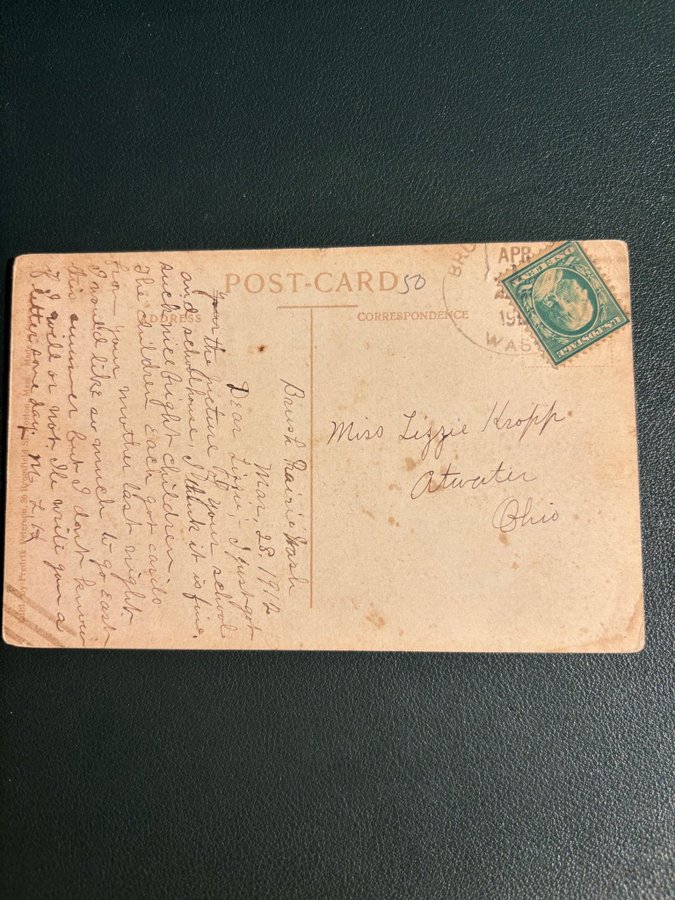 POST-CARD
50
ADDRESS
CORRESPONDENCE
BRU
APR
191
WASH
U.S. POSTAGE
Miss Lizzie Kropp
Atwater
Ohio
Brush Prairie Wash
Mar, 28, 1912
Dear Lizzie; I just got
your the picture of your school
and schoolhouse, I think it is fine.
such nice bright children.
The children each got cards
from your mother last night
I would like so much to go East
this summer but I dont know
if I will or not. Ile write you a
letter some day. M L H